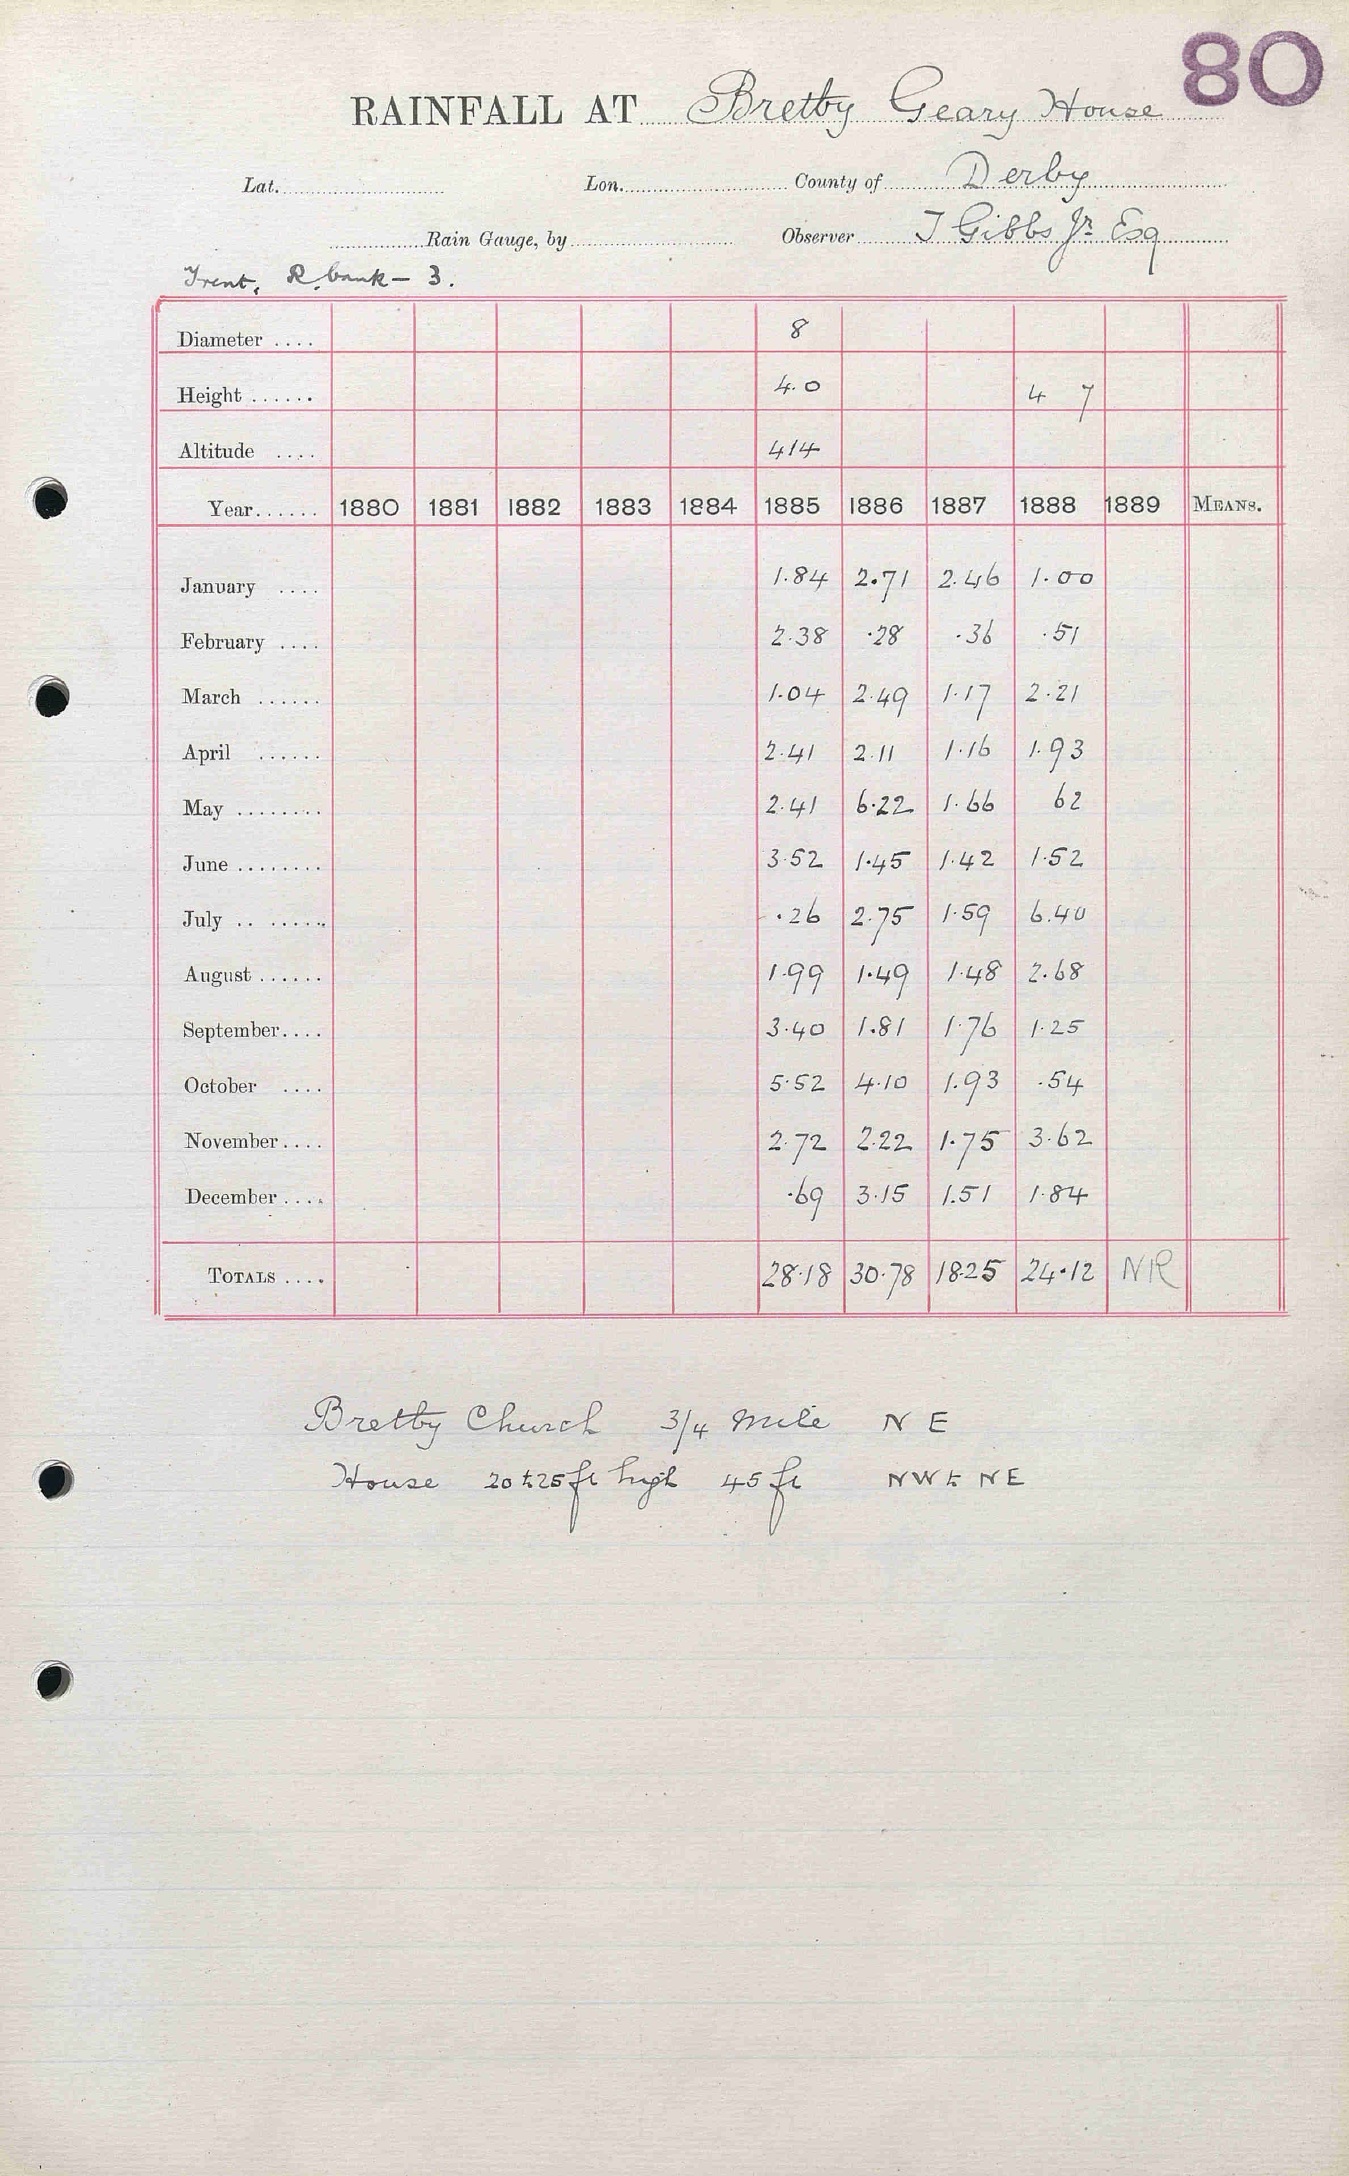 80
RAINFALL AT Bretby Geary House
Lat. Lon. County of Derby
Rain Gauge, by Observer T Gibbs Jr Esq
Trent, R. bank - 3.
Diameter .... 8
Height ...... 4.0 4 7
Altitude .... 414
Year...... 1880 1881 1882 1883 1884 1885 1886 1887 1888 1889 MEANS.
January .... 1.84 2.71 2.46 1.00
February .... 2.38 .28 .36 .51
March ...... 1.04 2.49 1.17 2.21
April ...... 2.41 2.11 1.16 1.93
May ........ 2.41 6.22 1.66 62
June ........ 3.52 1.45 1.42 1.52
July .. ...... .26 2.75 1.59 6.40
August ...... 1.99 1.49 1.48 2.68
September.... 3.40 1.81 1.76 1.25
October .... 5.52 4.10 1.93 .54
November.... 2.72 2.22 1.75 3.62
December .... .69 3.15 1.51 1.84
TOTALS .... 28.18 30.78 18.25 24.12 NR
Bretby Church 3/4 mile N E
House 20 to 25 ft high 45 ft NW to NE